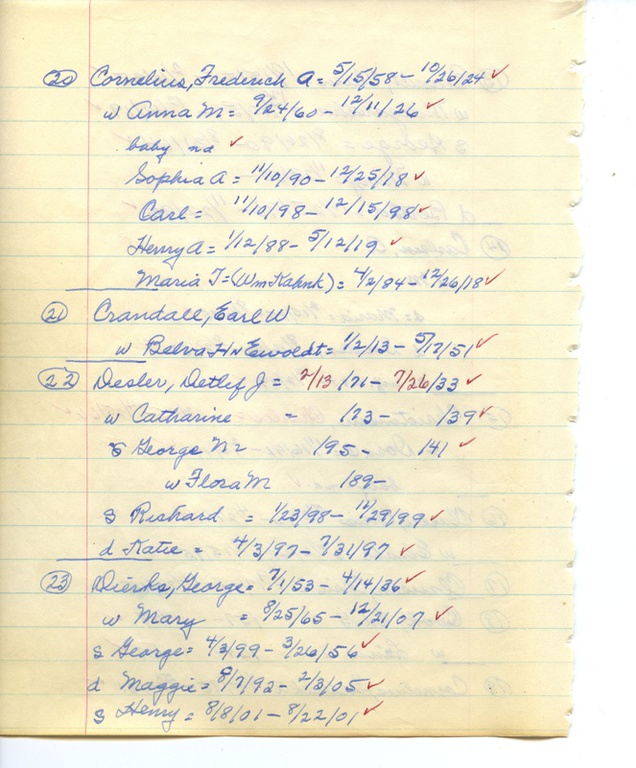 (20) Cornelius, Frederick A = 5/15/58 - 10/26/24 ✓
w Anna M = 9/24/60 - 12/11/26 ✓
baby nd ✓
Sophia A = 11/10/90 - 12/25/18 ✓
Carl = 11/10/98 - 12/15/98 ✓
Henry A = 1/12/88 - 5/12/19 ✓
Maria T = (Wm Kahnk) = 4/2/84 - 12/26/18 ✓
(21) Crandall, Earl W
w Belva H N Ewoldt = 1/2/13 - 5/17/51 ✓
(22) Desler, Detlef J = 2/13 /71 - 7/26/33 ✓
w Catharine = /73 - /39 ✓
s George N = /95 - /41 ✓
w Flora M /89 -
s Richard = 1/23/98 - 11/29/99 ✓
d Katie = 4/3/97 - 7/31/97 ✓
(23) Dierks, George = 7/1/53 - 4/14/36 ✓
w Mary = 8/25/65 - 12/21/07 ✓
s George = 4/3/99 - 3/26/56 ✓
d Maggie = 8/7/92 - 2/3/05 ✓
s Henry = 8/8/01 - 8/22/01 ✓